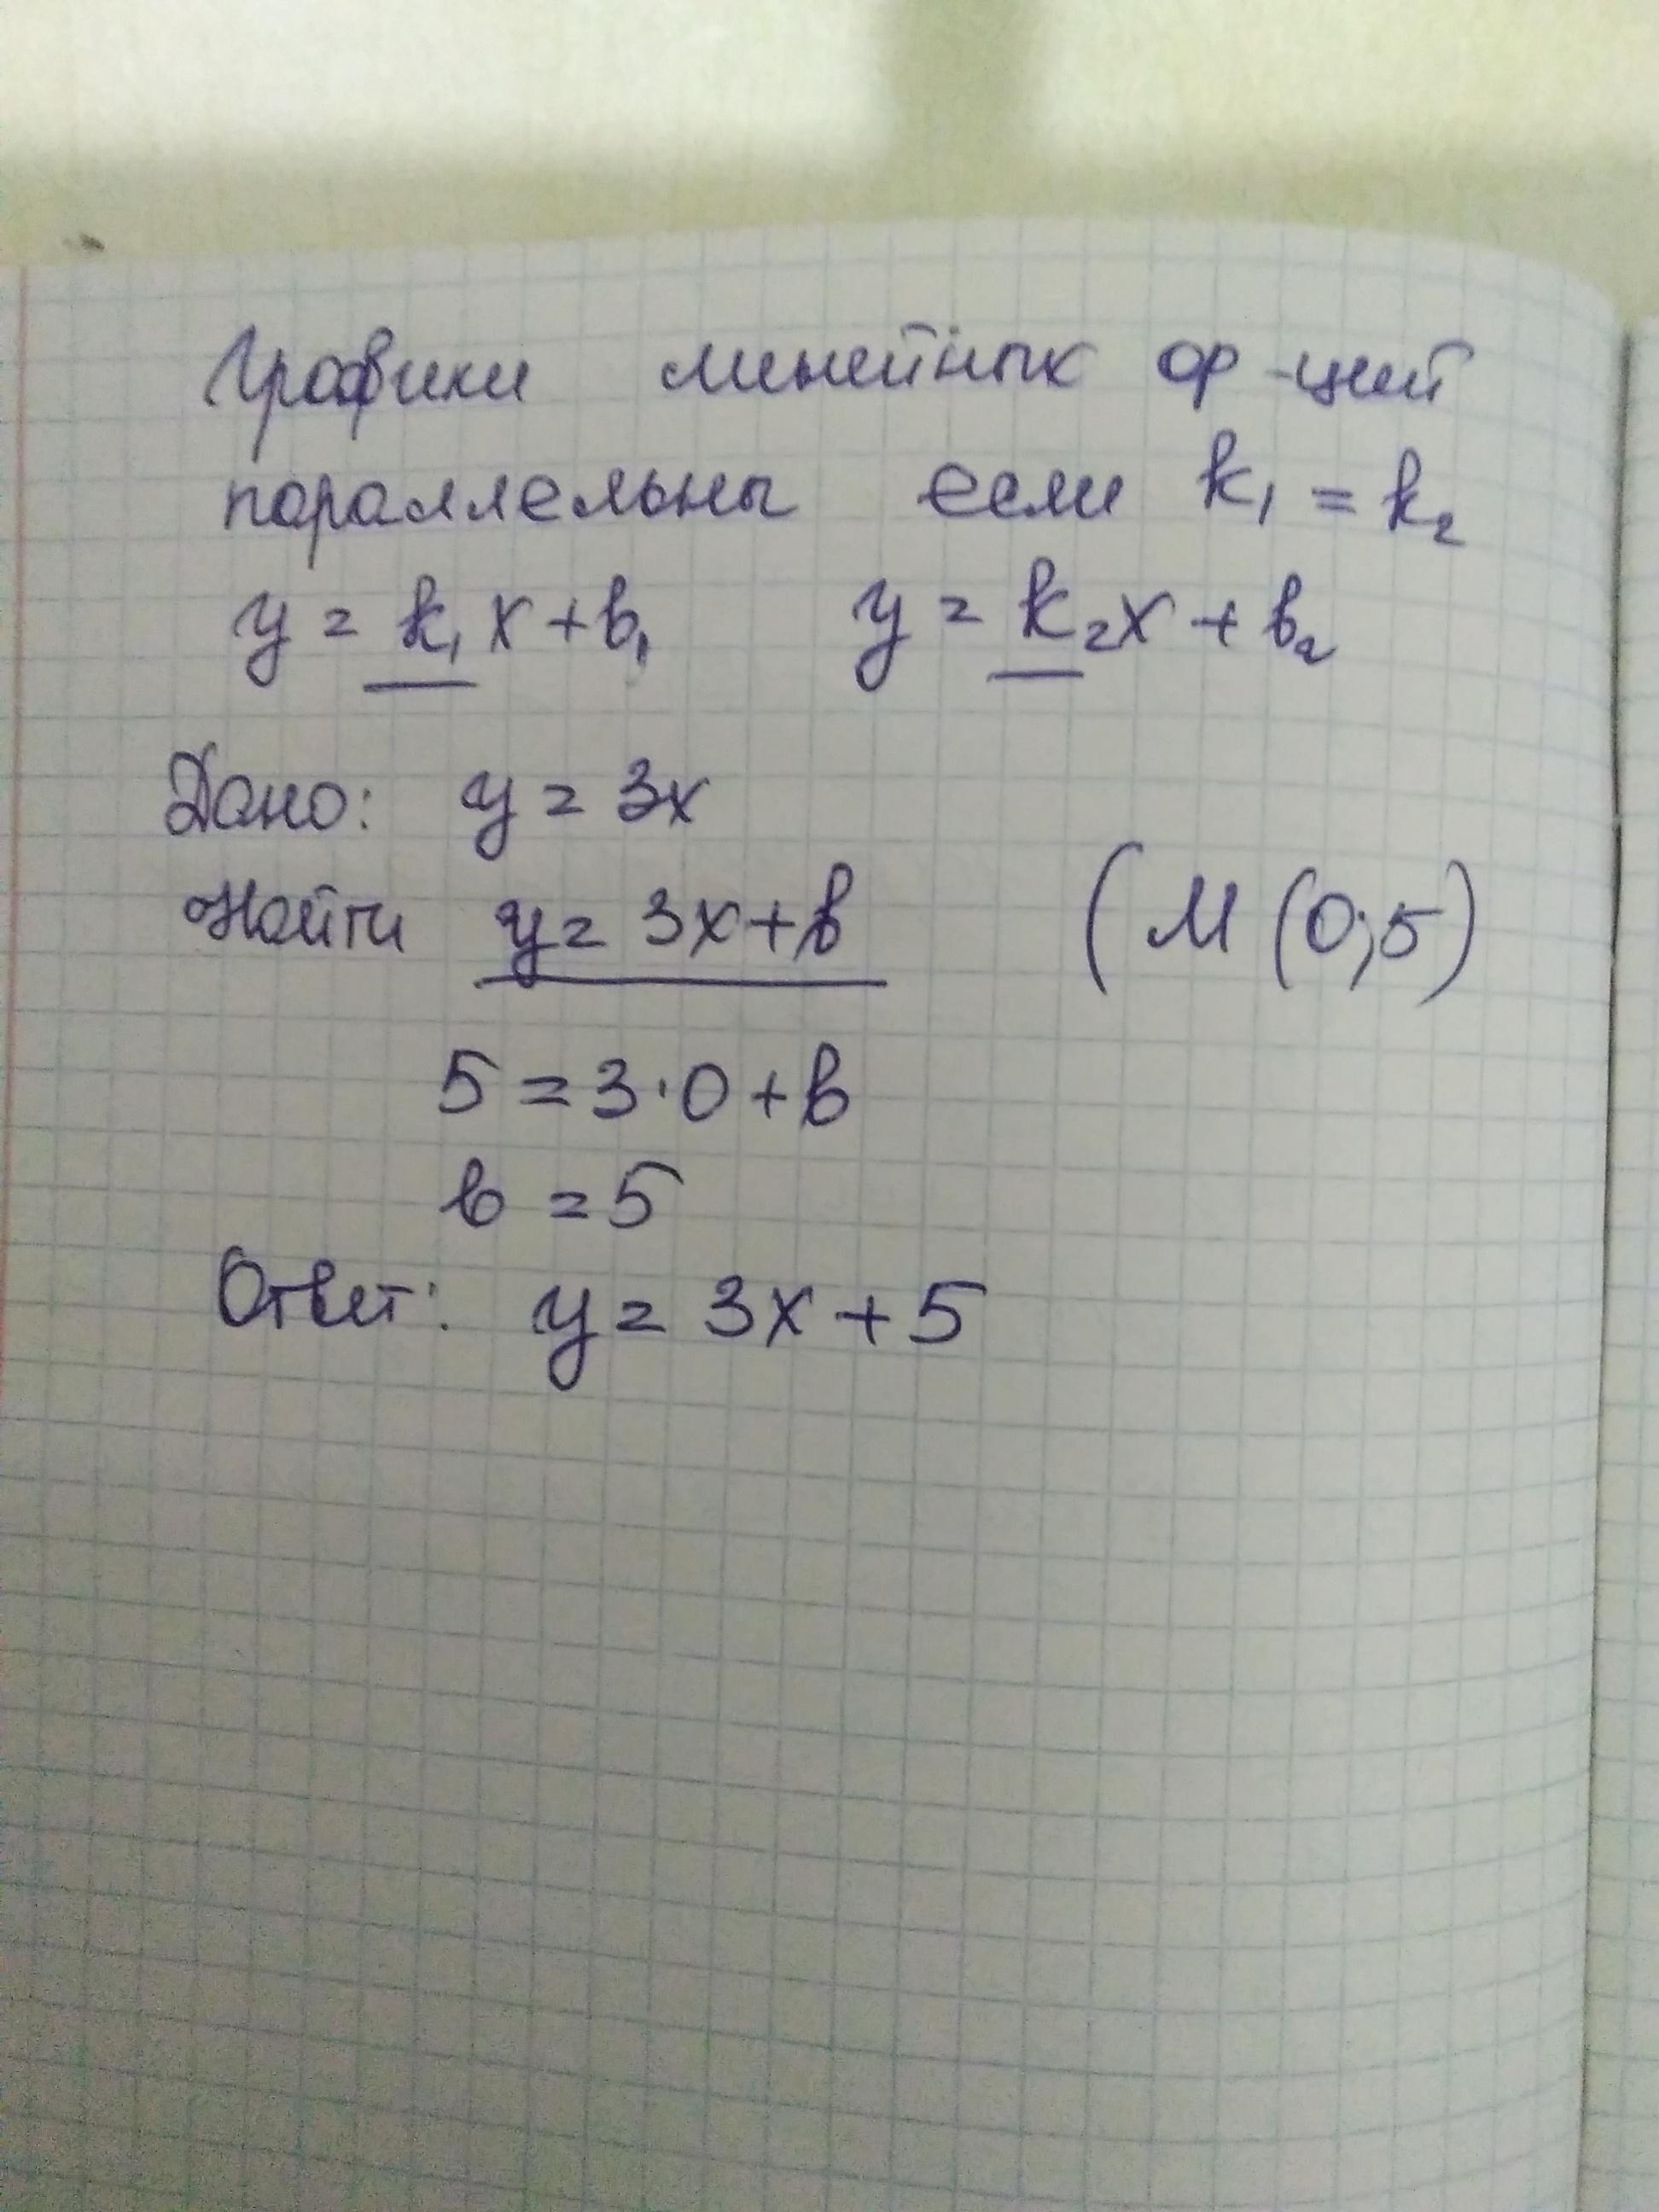 Графики линейных ф-ций
параллельны если k₁ = k₂
y = k₁x + b₁ y = k₂x + b₂
Дано: y = 3x
Найти y = 3x + b (M (0;5)
5 = 3·0 + b
b = 5
Ответ: y = 3x + 5